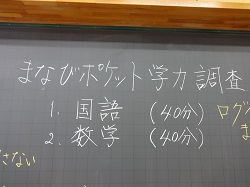 まなびポケット学力調査
1. 国語 (40分) ログ
2. 数学 (40分) ま
さない